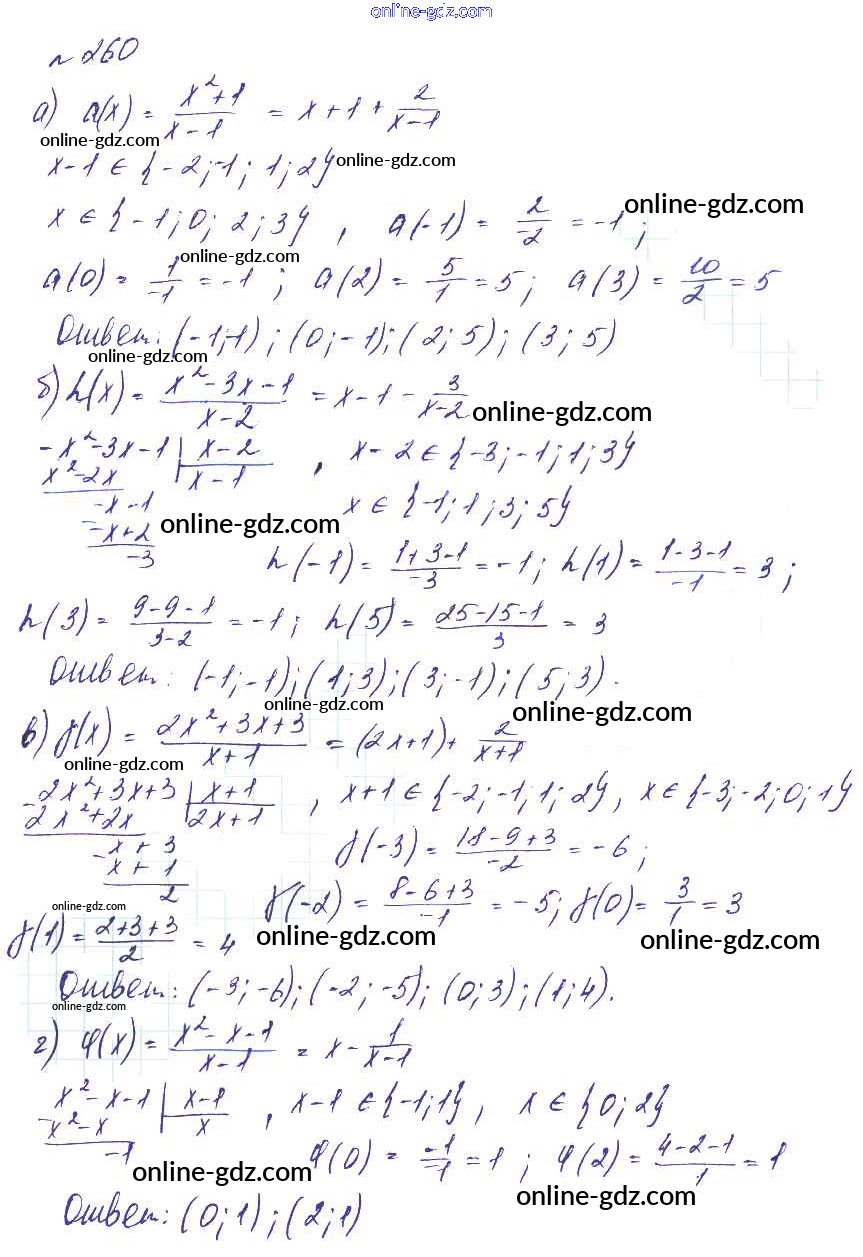 online-gdz.com
№ 260
а) a(x) = (x²+1)/(x-1) = x+1+ 2/(x-1)
online-gdz.com
x-1 ∈ {-2;-1; 1; 2} online-gdz.com
x ∈ {-1; 0; 2; 3}, a(-1) = 2/-2 = -1; online-gdz.com
online-gdz.com
a(0) = 1/-1 = -1; a(2) = 5/1 = 5; a(3) = 10/2 = 5
Ответ: (-1;-1); (0;-1); (2; 5); (3; 5)
online-gdz.com
б) h(x) = (x²-3x-1)/(x-2) = x-1- 3/(x-2) online-gdz.com
-x²-3x-1 | x-2 , x-2 ∈ {-3;-1; 1; 3}
x²-2x | x-1
-x-1 x ∈ {-1; 1; 3; 5}
-x+2 online-gdz.com
-3
h(-1) = (1+3-1)/-3 = -1; h(1) = (1-3-1)/-1 = 3;
h(3) = (9-9-1)/(3-2) = -1; h(5) = (25-15-1)/3 = 3
Ответ: (-1;-1); (1;3); (3;-1); (5;3).
online-gdz.com online-gdz.com
в) f(x) = (2x²+3x+3)/(x+1) = (2x+1)+ 2/(x+1)
online-gdz.com
-2x²+3x+3 | x+1 , x+1 ∈ {-2;-1; 1; 2}, x ∈ {-3;-2; 0; 1}
2x²+2x | 2x+1
-x+3 f(-3) = (18-9+3)/-2 = -6;
x+1
2
online-gdz.com
f(-2) = (8-6+3)/-1 = -5; f(0) = 3/1 = 3
f(1) = (2+3+3)/2 = 4 online-gdz.com online-gdz.com
Ответ: (-3;-6); (-2;-5); (0;3); (1;4).
online-gdz.com
г) φ(x) = (x²-x-1)/(x-1) = x- 1/(x-1)
x²-x-1 | x-1 , x-1 ∈ {-1;1}, x ∈ {0; 2}
-x²-x | x
-1 φ(0) = -1/-1 = 1; φ(2) = (4-2-1)/1 = 1
online-gdz.com online-gdz.com
Ответ: (0;1); (2;1)